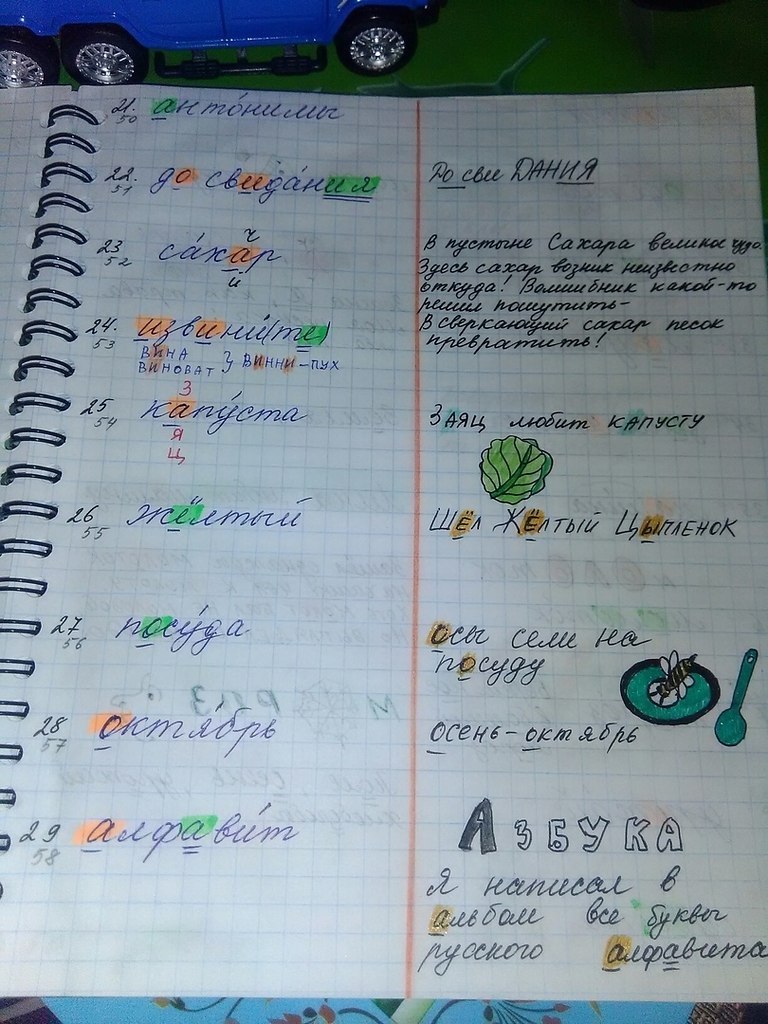 21.
50
антóнимы
22.
51
до свидáния
До сви ДАНИЯ
23
52
ч
сáхар
й
В пустыне Сахара велико чудо.
Здесь сахар возник неизвестно
откуда! Волшибник какой-то
решил пошутить-
В сверкающий сахар песок
превратить!
24.
53
извини́(те)
ВИНА
ВИНОВАТ } ВИННИ-ПУХ
25
54
З
капу́ста
Я
Ц
ЗАЯЦ любит КАПУСТУ
26
55
жёлтый
ШЁЛ ЖЁЛТЫЙ ЦЫПЛЕНОК
27
56
посу́да
осы сели на
посуду
28
57
октя́брь
осень-октябрь
29
58
алфави́т
АЗБУКА
Я написал в
альбом все буквы
русского алфавита